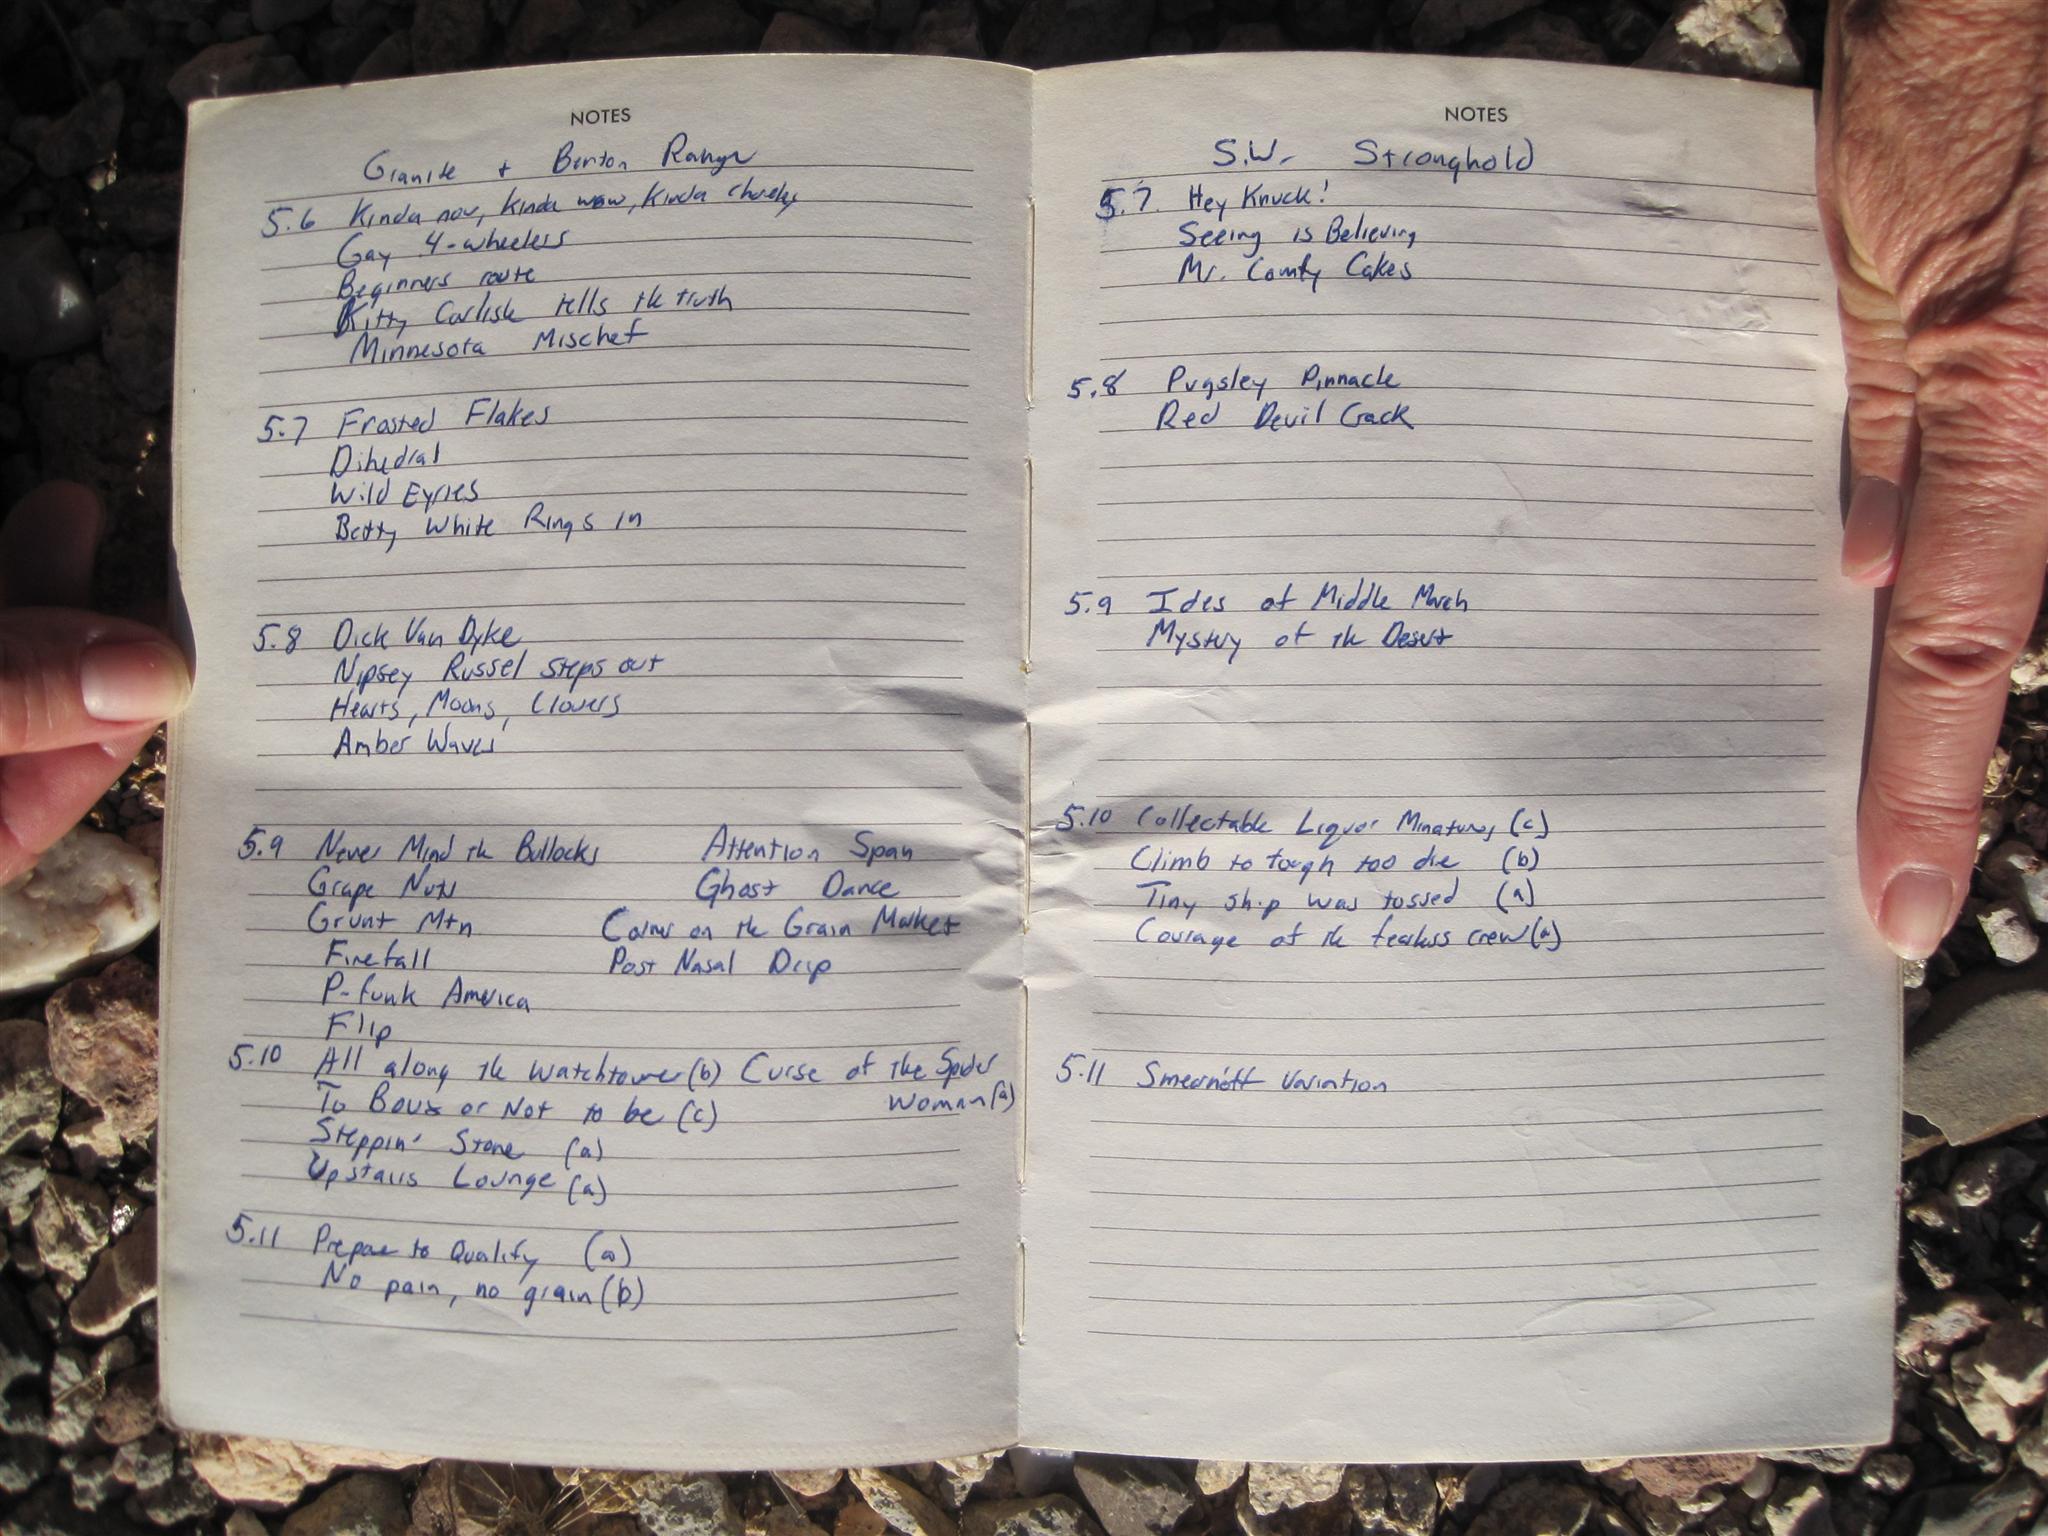 NOTES
Granite + Benton Range
5.6 Kinda new, Kinda wow, Kinda
Gay 4-wheelers
Beginners route
Kitty Carlisle tells the truth
Minnesota Mischef
5.7 Frosted Flakes
Dihedral
Wild Eyries
Betty White Rings in
5.8 Dick Van Dyke
Nipsey Russel steps out
Hearts, Moons, Clovers
Amber Waves
5.9 Never Mind the Bullocks Attention Span
Grape Nuts Ghost Dance
Grunt Mtn Corner on the Grain Market
Firefall Post Nasal Drip
P-funk America
Flip
5.10 All along the watchtower (b) Curse of the Spider
To Boux or Not to be (c) Woman (a)
Steppin' Stone (a)
Upstairs Lounge (a)
5.11 Prepare to Qualify (a)
No pain, no grain (b)
NOTES
S.W. Stronghold
5.7. Hey Knuck!
Seeing is Believing
Mr. Comfy Cakes
5.8 Pugsley Pinnacle
Red Devil Crack
5.9 Ides of Middle March
Mystery of the Desert
5.10 Collectable Liquor Minatures (c)
Climb to tough too die (b)
Tiny ship was tossed (a)
Courage of the fearless crew (a)
5.11 Smearnoff Variation